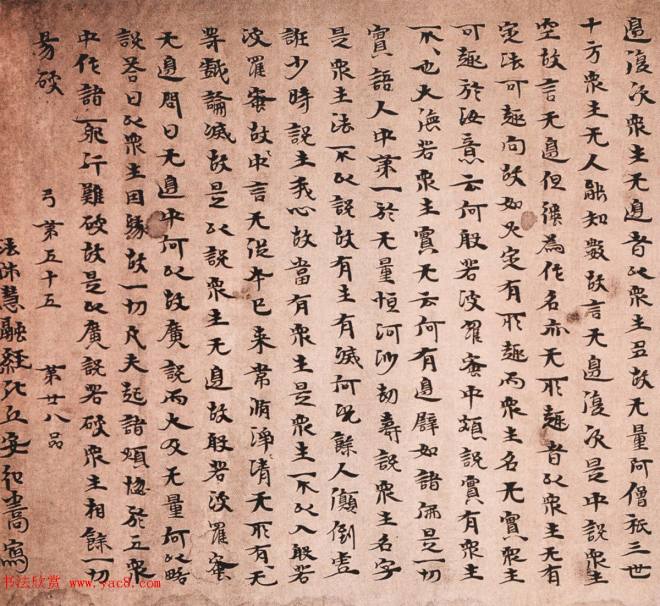 邉復次衆生无邉者以衆生多故无量阿僧祇三世
十方衆生无人能知數故言无邉復次是中說衆生
空故言无邉但彊為作名亦无所趣者以衆生无有
定法可趣向故如火定有所趣而衆生名无實衆生
可趣於汝意云何般若波羅蜜中頗說實有衆生
不不也大德若衆生實无云何有邉譬如諸佛是一切
實語人中第一於无量恒河沙劫壽說衆生名字
是衆生法不以說故有生有滅何況餘人顛倒虚
誑少時說生我心故當有衆生是衆生不以入般若
波羅蜜故中言无從本已来常清淨清无所有无
等戲論滅故是以說衆生无邉故般若波羅蜜
无邉問曰无邉中何以故廣說而大及无量何以略
說荅曰以衆生因縁故一切凡夫起諸煩惱於五衆
中作諸耶行難破故是以廣說若破衆生相餘一切
易破
弓第五十五 第廿八品
法師慧融經 比丘安弘嵩寫
书法欣赏 www.yac8.com